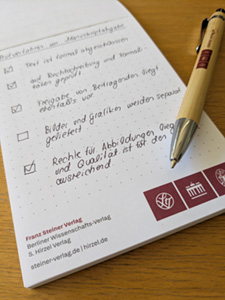 Text ist formal abgeschlossen
auf Rechtschreibung und
geprüft
Freigabe von Beitragenden liegt
ebenfalls vor
Bilder und Grafiken werden separat
geliefert
Rechte für Abbildungen liegen
und Qualität ist für den
ausreichend
Franz Steiner Verlag
Berliner Wissenschafts-Verlag
S. Hirzel Verlag
steiner-verlag.de | hirzel.de